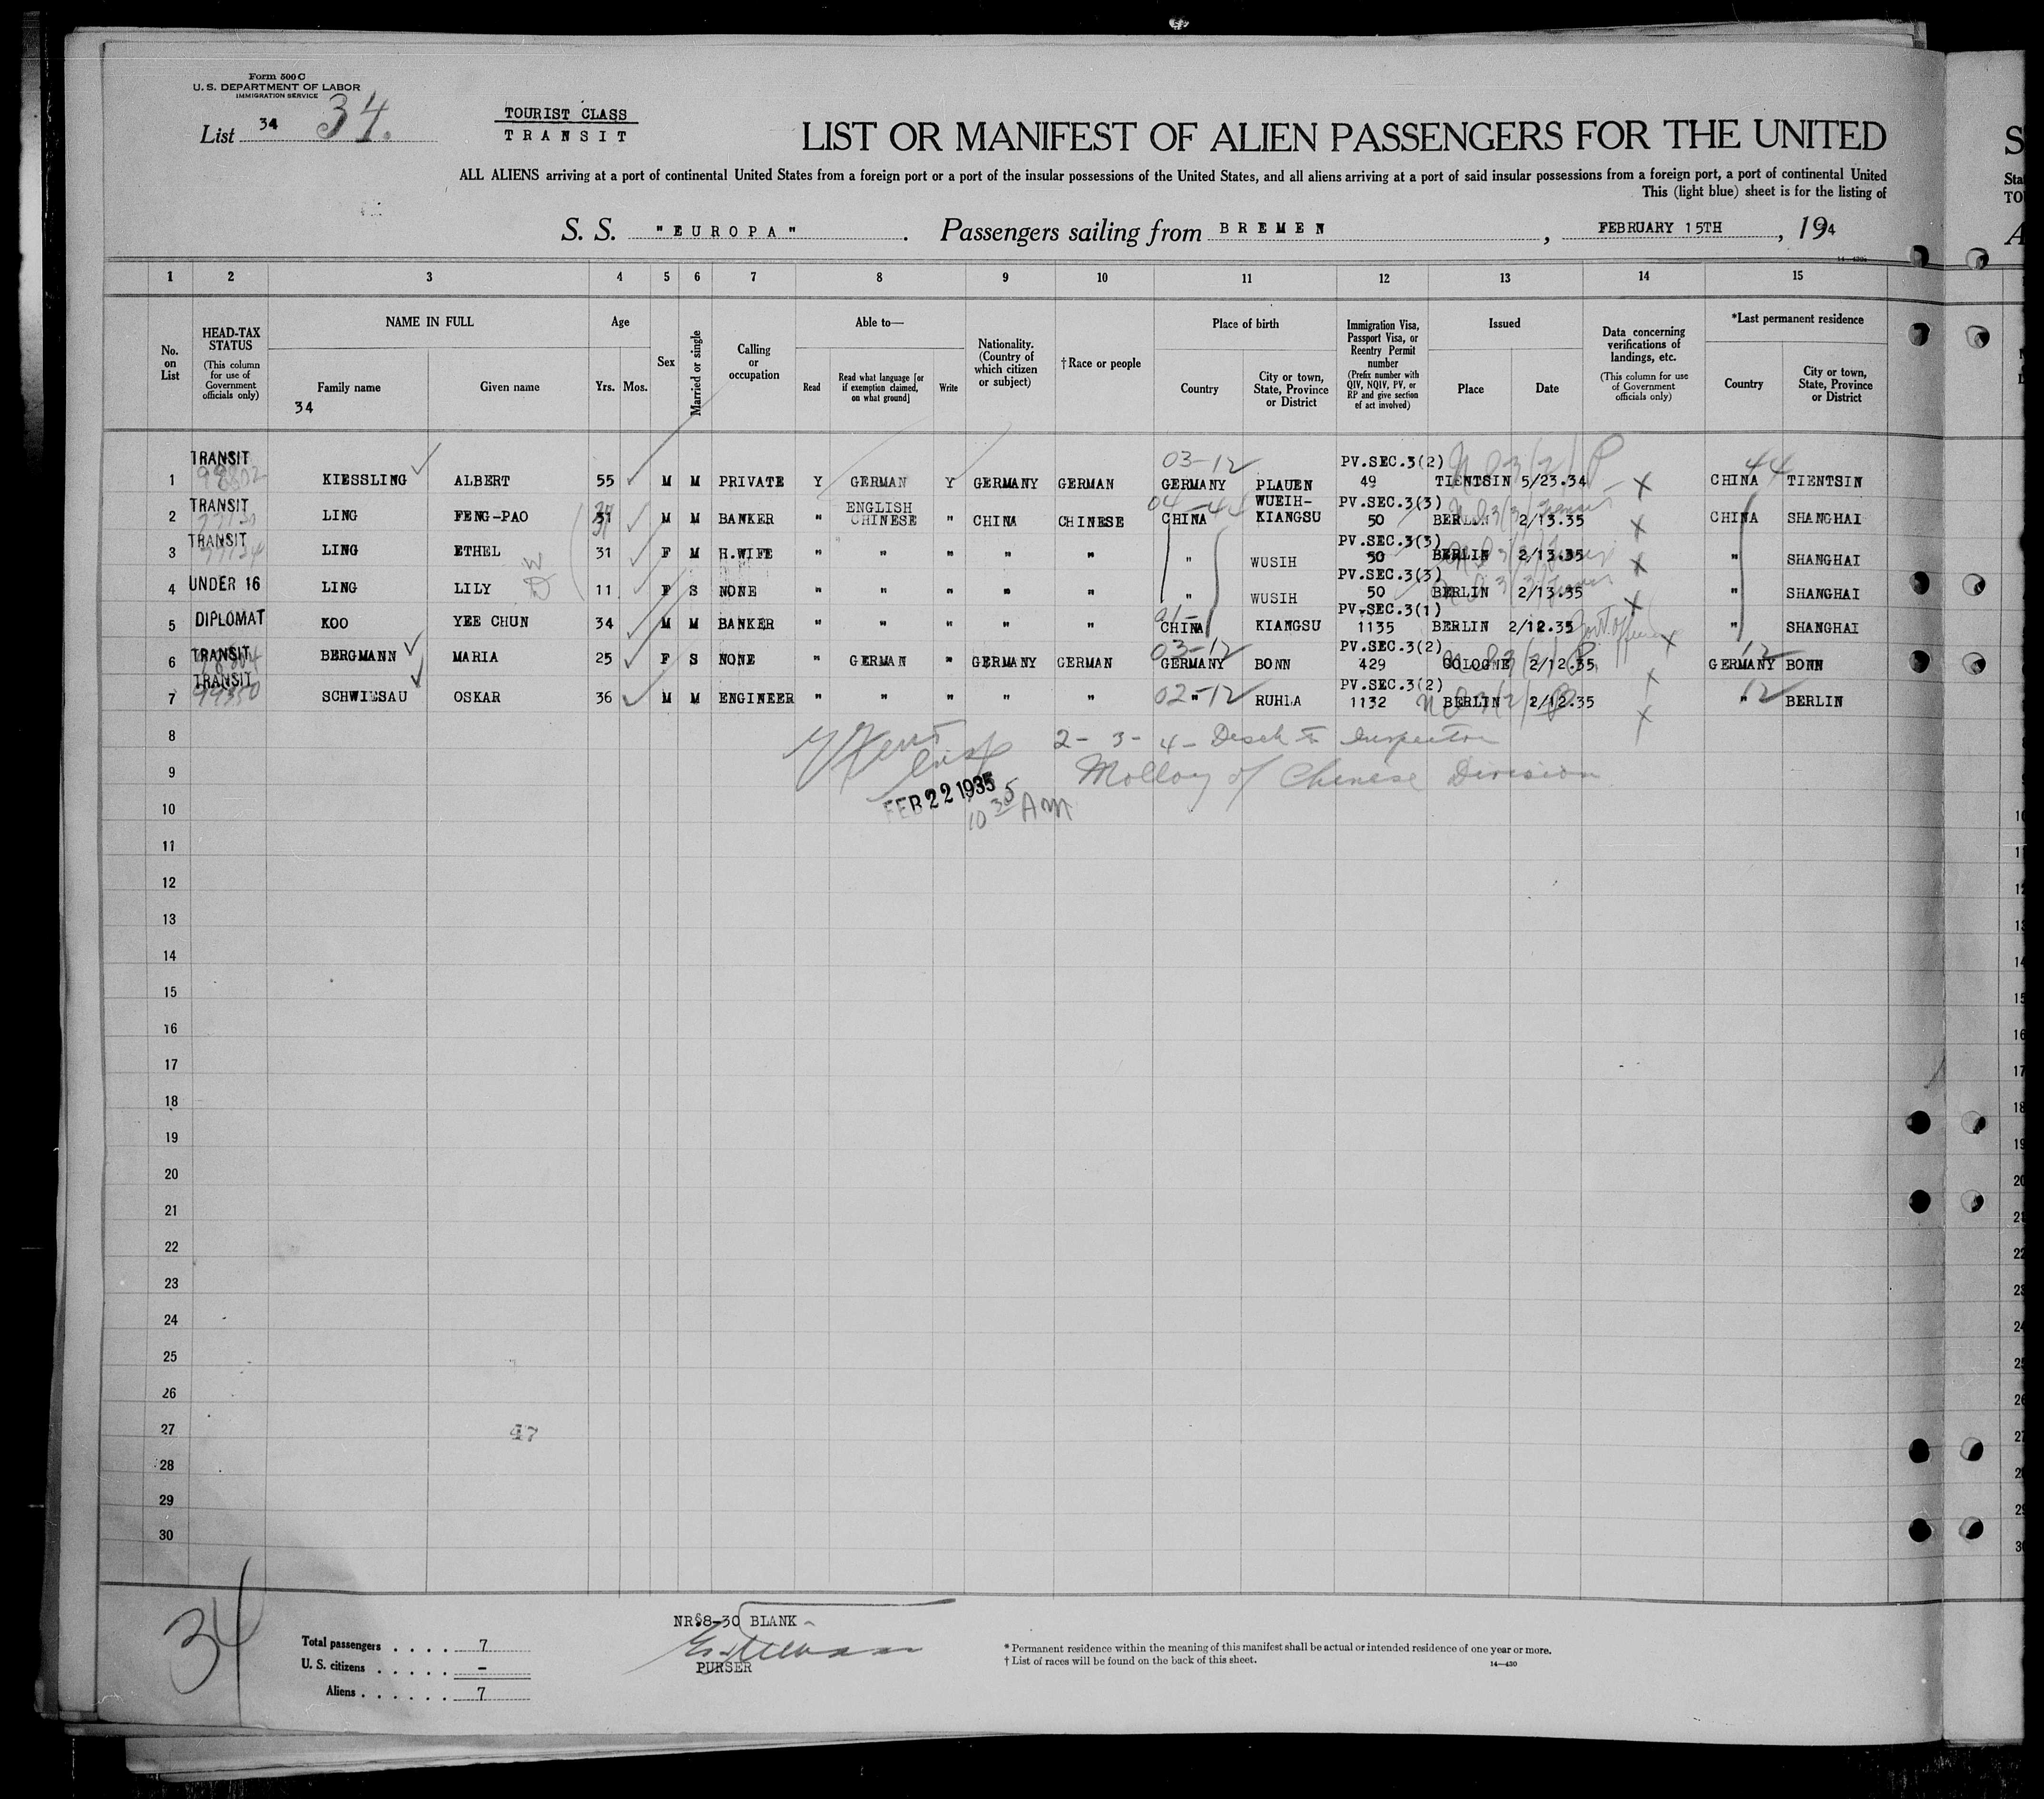 Form 500 C
U. S. DEPARTMENT OF LABOR
IMMIGRATION SERVICE
List 34 34.
TOURIST CLASS
TRANSIT
LIST OR MANIFEST OF ALIEN PASSENGERS FOR THE UNITED
ALL ALIENS arriving at a port of continental United States from a foreign port or a port of the insular possessions of the United States, and all aliens arriving at a port of said insular possessions from a foreign port, a port of continental United
This (light blue) sheet is for the listing of
S. S. "EUROPA". Passengers sailing from BREMEN, FEBRUARY 15TH, 194
1 2 3 4 5 6 7 8 9 10 11 12 13 14 15
No. on List
HEAD-TAX STATUS (This column for use of Government officials only)
NAME IN FULL
Family name Given name
34
Age
Yrs. Mos.
Sex
Married or single
Calling or occupation
Able to—
Read
Read what language [or if exemption claimed, on what ground]
Write
Nationality. (Country of which citizen or subject)
†Race or people
Place of birth
Country
City or town, State, Province or District
Immigration Visa, Passport Visa, or Reentry Permit number (Prefix number with QIV, NQIV, PV, or RP and give section of act involved)
Issued
Place Date
Data concerning verifications of landings, etc. (This column for use of Government officials only)
*Last permanent residence
Country
City or town, State, Province or District
TRANSIT 03-12 PV.SEC.3(2) 44
1 KIESSLING ALBERT 55 M M PRIVATE Y GERMAN Y GERMANY GERMAN GERMANY PLAUEN 49 TIENTSIN 5/23.34 CHINA TIENTSIN
TRANSIT ENGLISH WUEIH- PV.SEC.3(3)
2 LING FENG-PAO M M BANKER " CHINESE " CHINA CHINESE CHINA KIANGSU 50 BERLIN 2/13.35 CHINA SHANGHAI
TRANSIT PV.SEC.3(3)
3 LING ETHEL W 31 F M H.WIFE " " " " " " WUSIH 50 BERLIN 2/13.35 " SHANGHAI
PV.SEC.3(3)
4 UNDER 16 LING LILY D 11 F S NONE " " " " " " WUSIH 50 BERLIN 2/13.35 " SHANGHAI
PV.SEC.3(1)
5 DIPLOMAT KOO YEE CHUN 34 M M BANKER " " " " " CHINA KIANGSU 1135 BERLIN 2/12.35 " SHANGHAI
03-12 PV.SEC.3(2) 12
6 TRANSIT BERGMANN MARIA 25 F S NONE " GERMAN " GERMANY GERMAN GERMANY BONN 429 COLOGNE 2/12.35 GERMANY BONN
TRANSIT PV.SEC.3(2)
7 99350 SCHWIESAU OSKAR 36 M M ENGINEER " " " " " 02-12 " RUHLA 1132 BERLIN 2/12.35 " 12 BERLIN
8 2-3-4- Disch to Inspector
9 Molloy of Chinese Division
FEB 22 1935
10 10 35 AM
11
12
13
14
15
16
17
18
19
20
21
22
23
24
25
26
27 47
28
29
30
34
Total passengers . . . . 7
U. S. citizens . . . . . –
Aliens . . . . . . 7
NRS8-30 BLANK
PURSER
* Permanent residence within the meaning of this manifest shall be actual or intended residence of one year or more.
† List of races will be found on the back of this sheet.
14—430